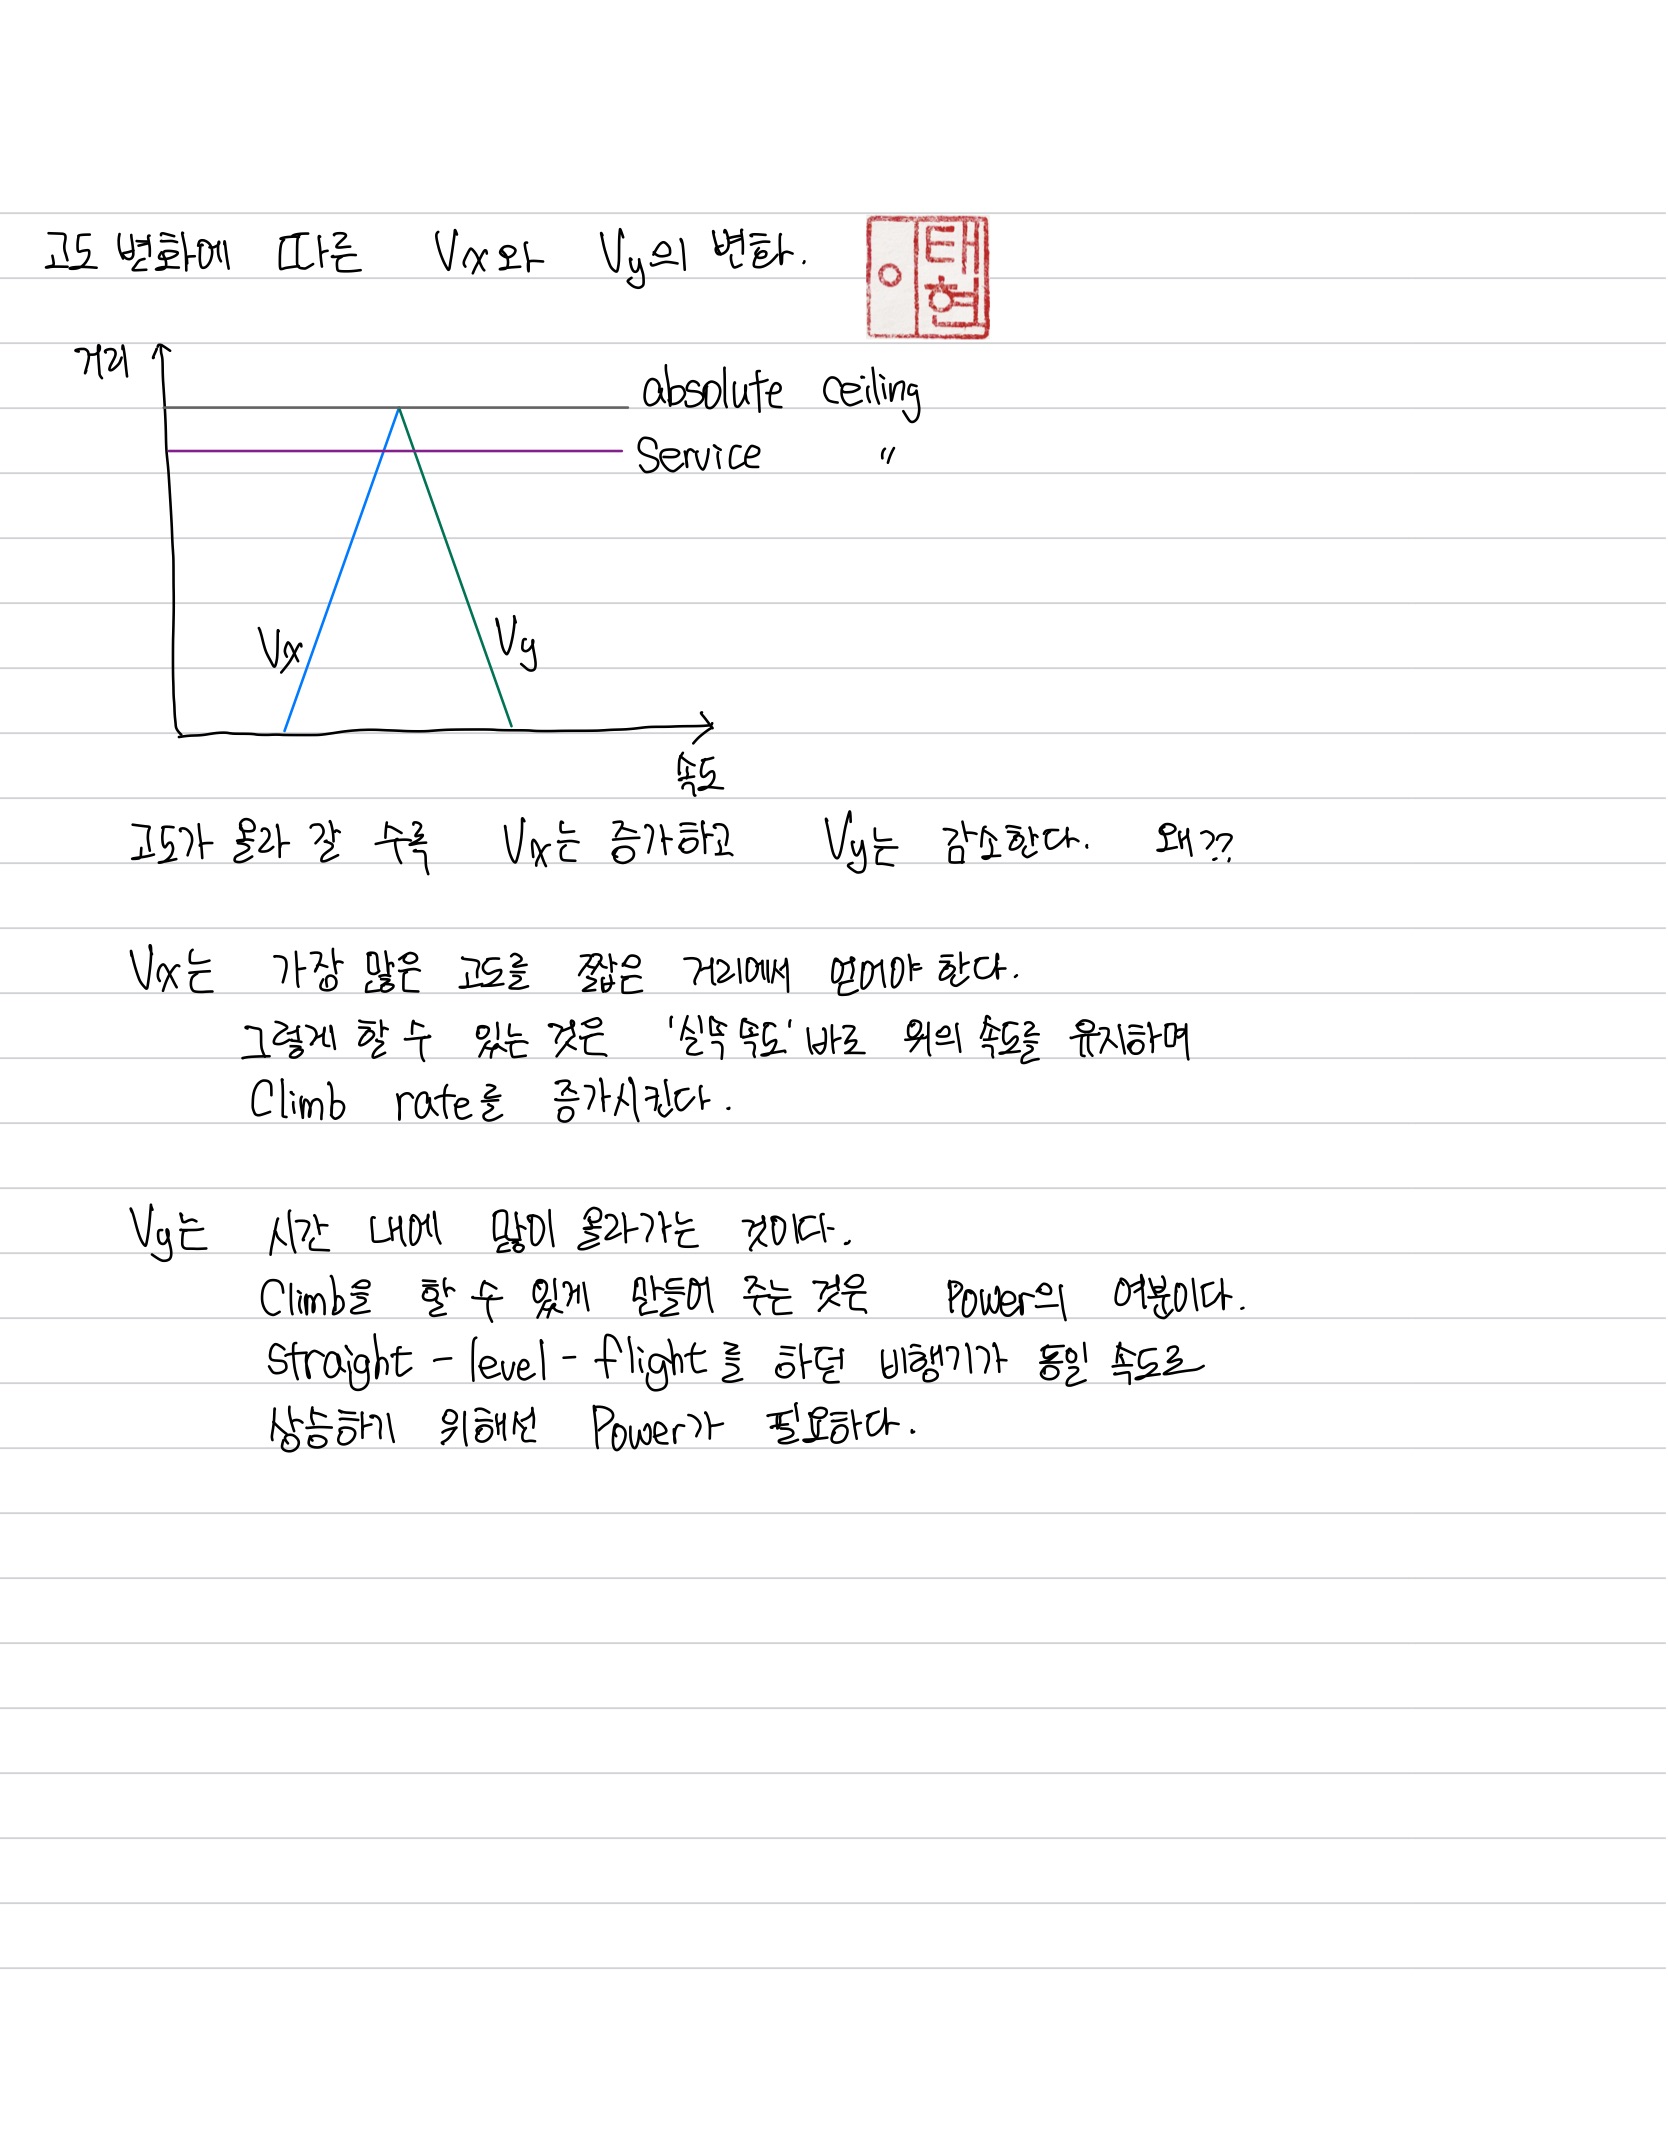 고도 변화에 따른 Vx와 Vy의 변화.
태현
거리
absolute ceiling
Service "
Vx
Vy
속도
고도가 올라 갈 수록 Vx는 증가하고 Vy는 감소한다. 왜??
Vx는 가장 많은 고도를 짧은 거리에서 얻어야 한다.
그렇게 할 수 있는 것은 '실속 속도' 바로 위의 속도를 유지하며
Climb rate를 증가시킨다.
Vy는 시간 내에 많이 올라가는 것이다.
Climb을 할 수 있게 만들어 주는 것은 Power의 여분이다.
Straight - level - flight를 하던 비행기가 동일 속도로
상승하기 위해선 Power가 필요하다.